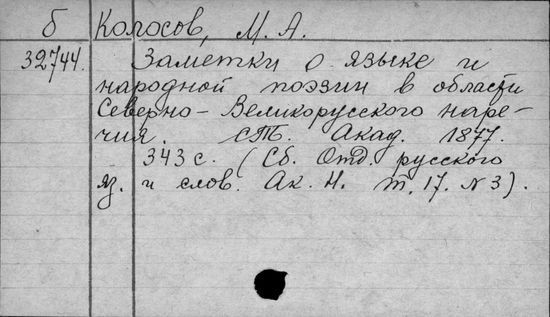 б Колосов, М. А.
32744. Заметки о языке и
народной поэзии в области
Северно-Великорусского наре-
чия. СПБ. Акад. 1877.
343 с. (Сб. Отд. русского
яз. и слов. Ак. Н. т. 17. №3).